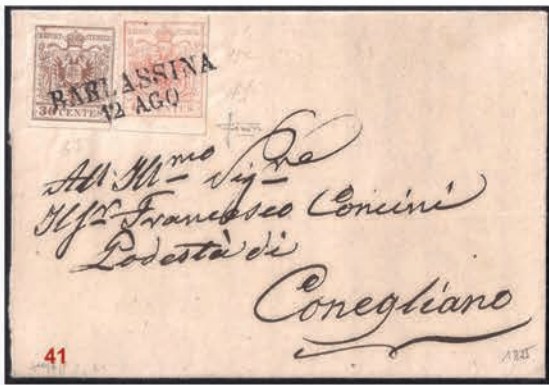 30 CENTES
BARLASSINA
12 AGO
All' Ill.mo Sig.re
Il Sr. Francesco Concini
Podestà di
Conegliano
41